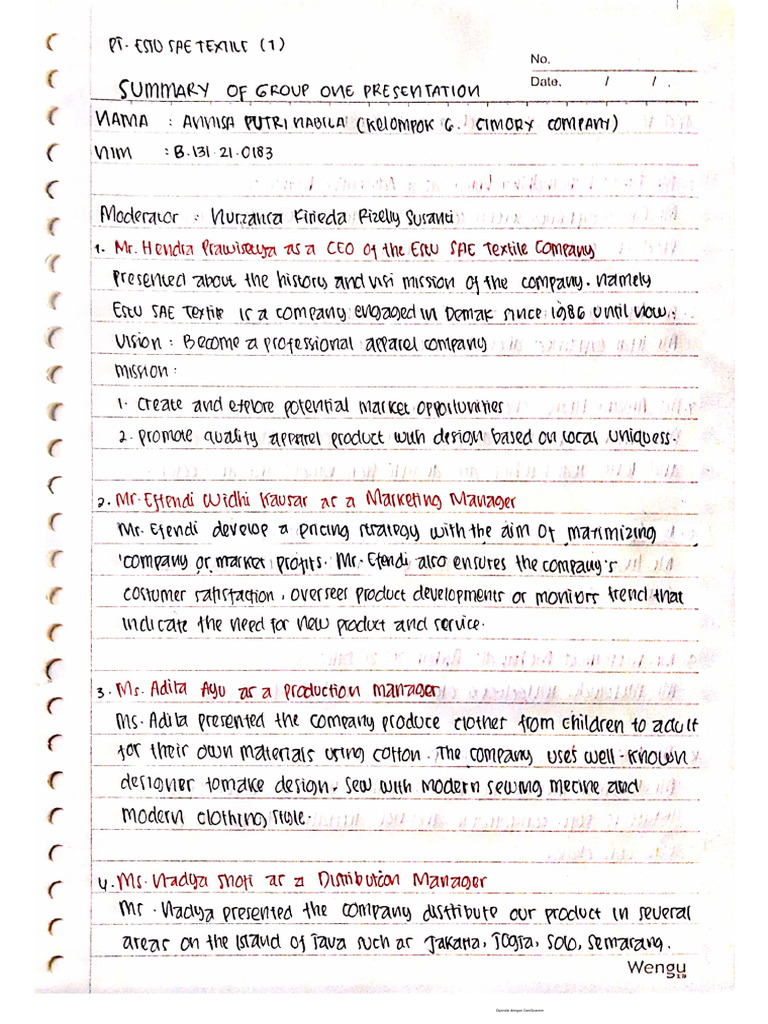 PT. ESTU SAE TEXTILE (1)
No.
Date. / / .
SUMMARY OF GROUP ONE PRESENTATION
NAMA : ANNISA PUTRI NABILA (KELOMPOK 6. CIMORY COMPANY)
NIM : B.131.21.0183
Moderator : Nurzahra Firieda Rizelly Susanti
1. Mr. Hendra Prawiseya as a CEO Of the Estu SAE Textile Company
Presented about the history and visi mission of the company. namely
Estu SAE Textile is a company engaged in Demak since 1986 until now.
Vision : Become a professional apparel company
mission :
1. Create and explore potential market opportunities
2. promote quality apparel product with design based on local uniquess.
2. Mr. Efendi Widhi Kausar as a Marketing Manager
Mr. Efendi develop a pricing strategy with the aim of maximizing
company or market profits. Mr. Efendi also ensures the company's
costumer satisfaction, overseer product developments or monitors trend that
indicate the need for new product and service.
3. Ms. Adita Ayu as a production manager
Ms. Adita presented the company produce clother from children to adult
for their own materials using cotton. The company uses well-known
designer tomake design. Sew with modern sewing mecine and
modern clothing style.
4. Ms. Nadya Shofi as a Distribution Manager
Mr. Nadya presented the company distribute our product in several
areas on the Island of Java such as Jakarta, Jogja, Solo, Semarang.
Wengu
Dipindai dengan CamScanner